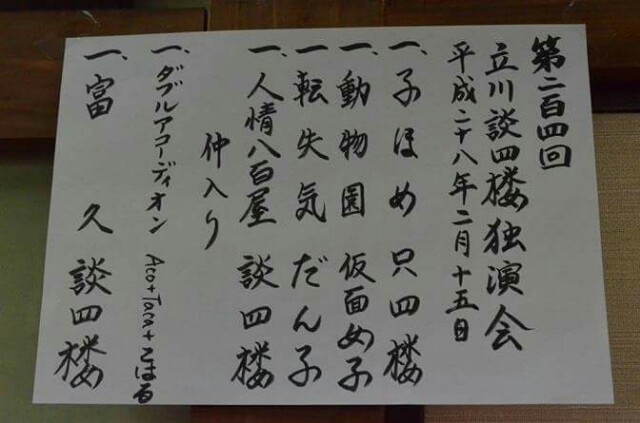 第二百四回
立川談四楼独演会
平成二十八年二月十五日
一、子ほめ 只四楼
一、動物園 仮面女子
一、転失気 だん子
一、人情八百屋 談四楼
仲入り
一、ダブルアコーディオン Aco+Taca+こはる
一、富久 談四楼